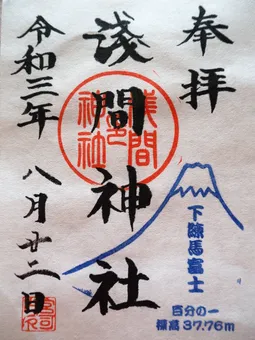 奉拝
浅間神社
令和三年 八月廿二日
浅間神社
下練馬富士
百分の一
標高37.76m